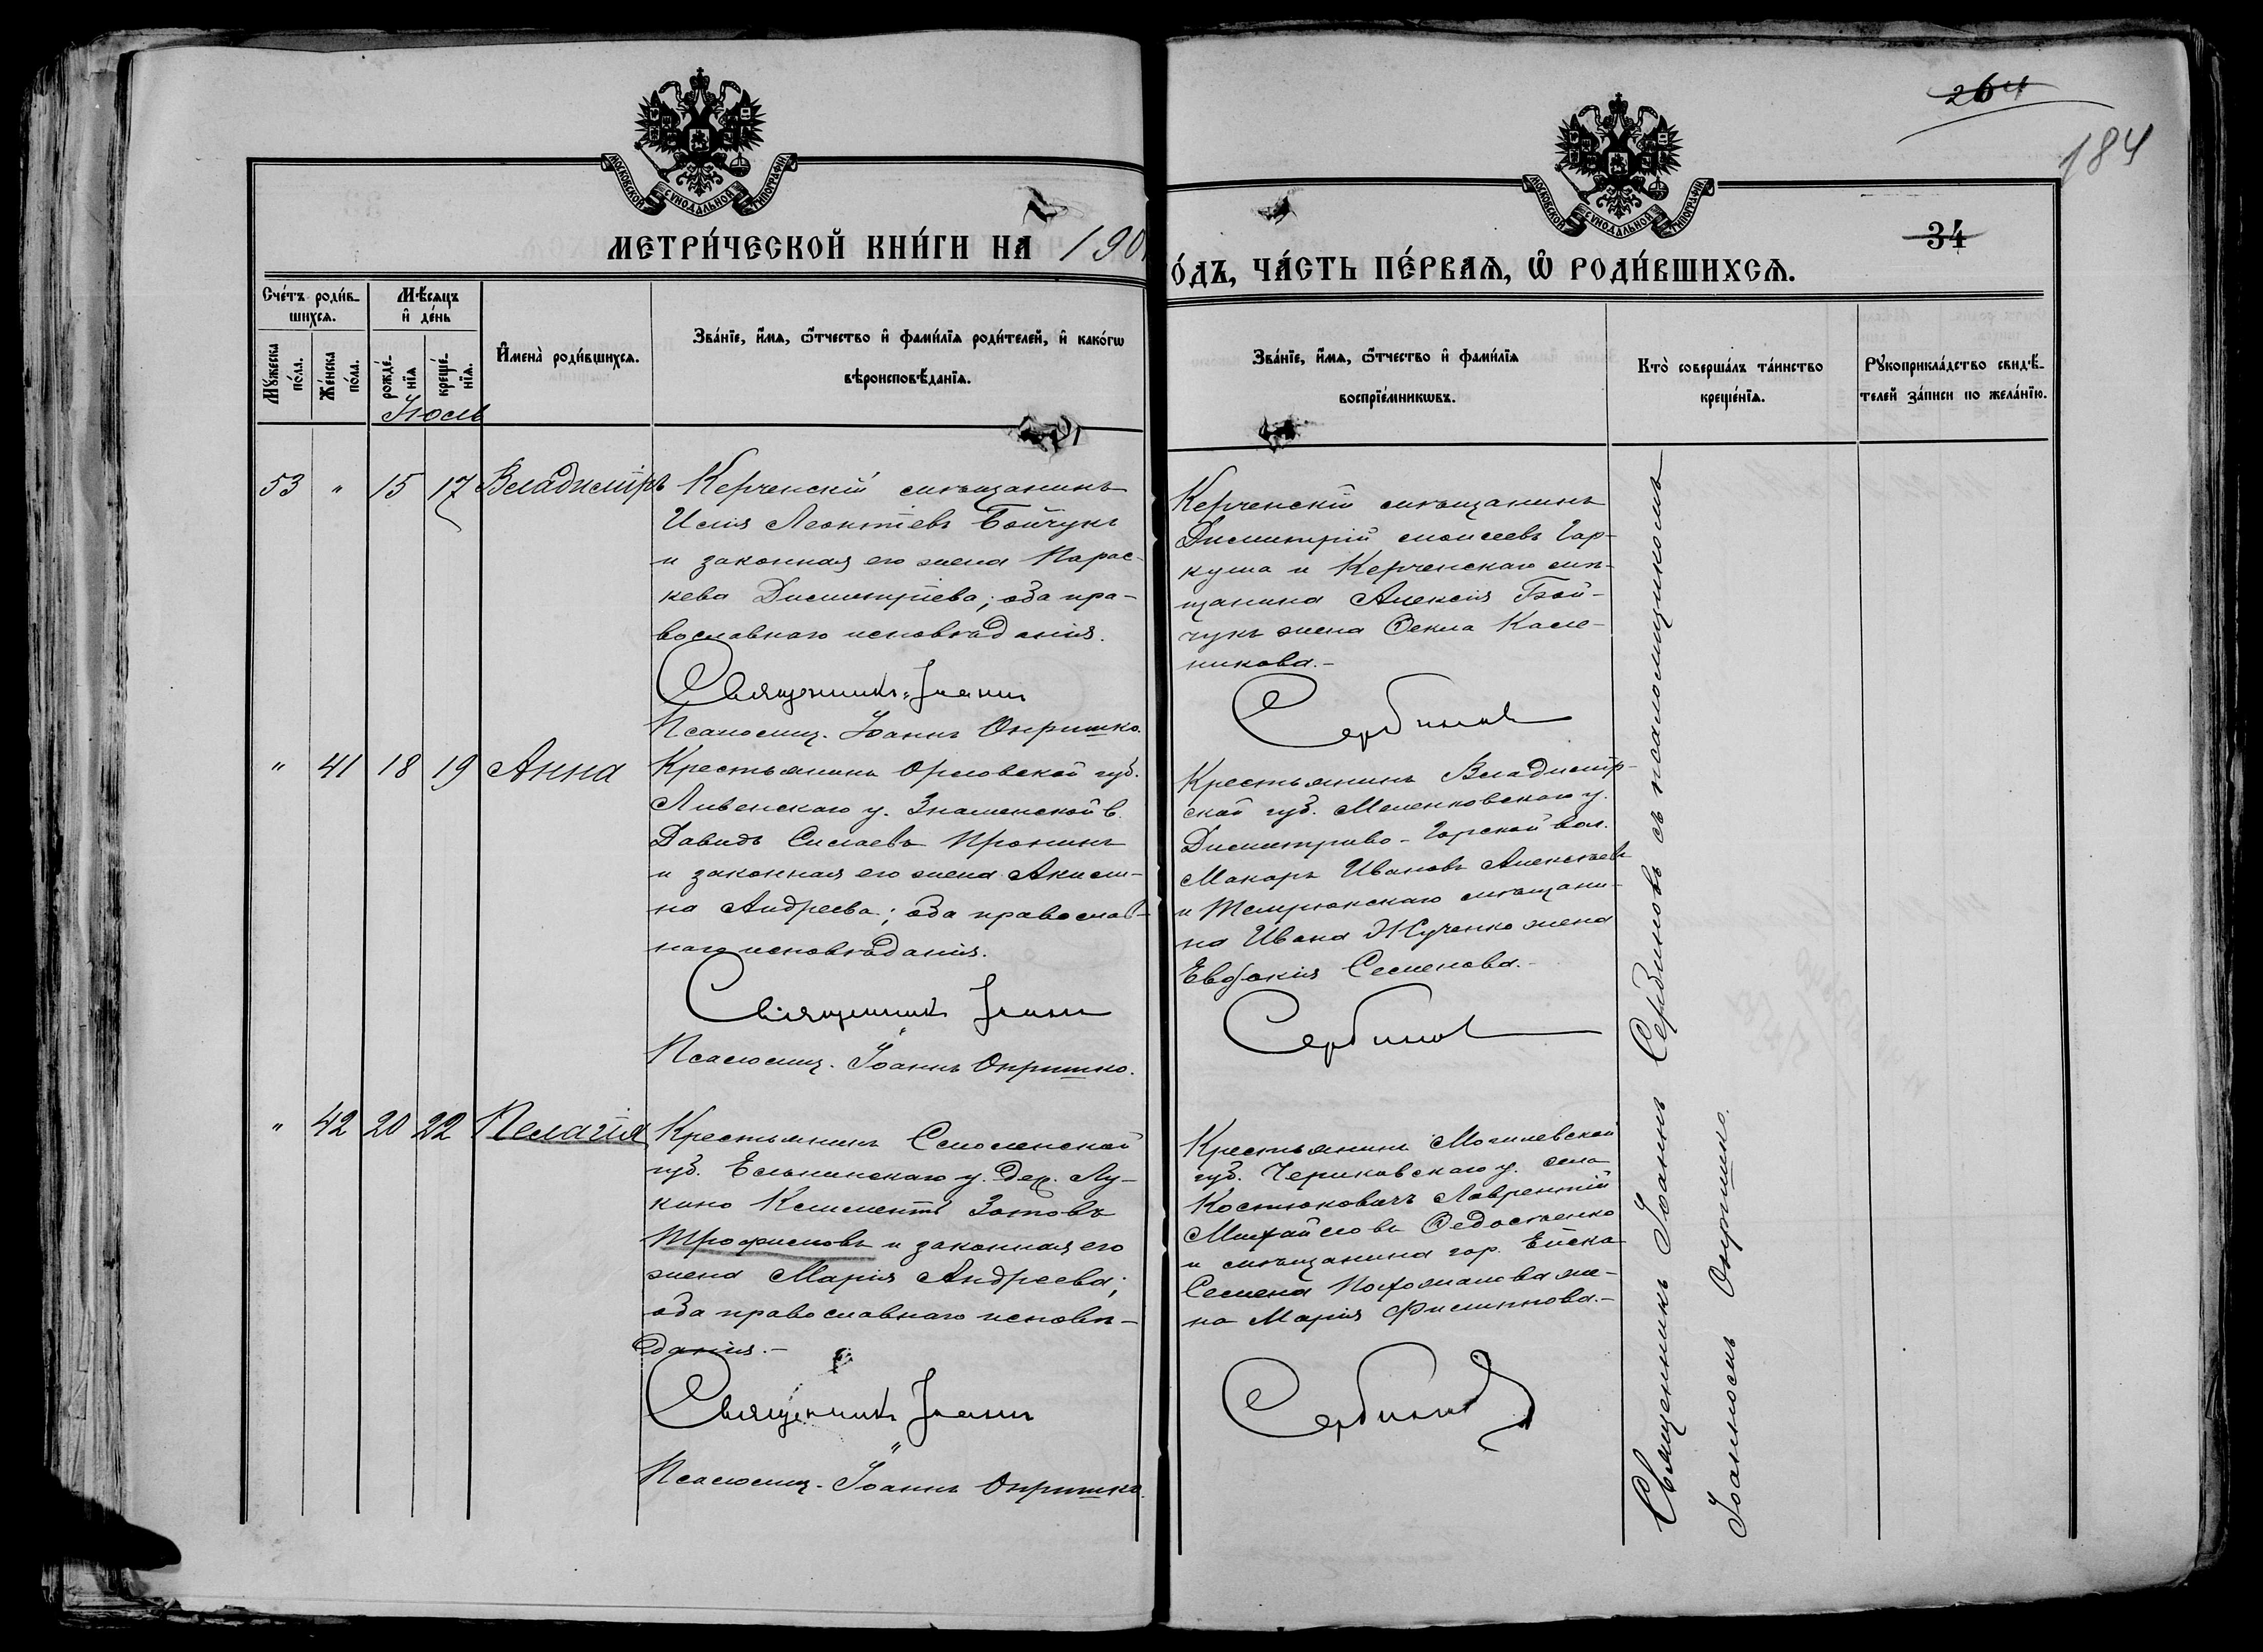 264
184
МОСКОВСКОЙ СѴНОДАЛЬНОЙ ТИПОГРАФІИ
МОСКОВСКОЙ СѴНОДАЛЬНОЙ ТИПОГРАФІИ
34
МЕТРИ́ЧЕСКОЙ КНИ́ГИ НА 190
О́ДЪ, ЧА́СТЬ ПЕ́РВАѦ, Ѽ РОДИ́ВШИХСѦ.
Сче́тъ роди́в-
шихсѧ.
Мꙋ́жеска по́ла.
Же́нска по́ла.
Мѣ́сѧцъ и҆ де́нь
рожде́-
нїѧ
креще́-
нїѧ.
Июль
И҆мена̀ роди́вшихсѧ.
Зва́нїе, и҆́мѧ, ѻ҆́тчество и҆ фамї́лїѧ роди́телей, и҆ како́гѡ
вѣроисповѣ́данїѧ.
Зва́нїе, и҆́мѧ, ѻ҆́тчество и҆ фамї́лїѧ
воспрїе́мникѡвъ.
Кто̀ соверша́лъ та́инство
креще́нїѧ.
Рꙋкоприкла́дство свидѣ́-
телей за́писи по жела́нїю.
53 " 15 17 Владиміръ
Керченскій мѣщанинъ
Илія Леонтіевъ Бойчукъ
и законная его жена Парас-
кева Димитріева; оба пра-
вославнаго исповѣданія.
Священникъ Іоаннъ
Псаломщ. Іоаннъ Опришко.
Керченскій мѣщанинъ
Димитрій Моисеевъ Гар-
куша и Керченскаго мѣ-
щанина Алексія Бой-
чукъ жена Ѳекла Кале-
никова.-
Сербиновъ
" 41 18 19 Анна
Крестьянинъ Орловской губ.
Ливенскаго у. Знаменской в.
Давидъ Силаевъ Пронинъ
и законная его жена Акили-
на Андреева; оба православ-
наго исповѣданія.
Священникъ Іоаннъ
Псаломщ. Іоаннъ Опришко.
Крестьянинъ Владимір-
ской губ. Меленковскаго у.
Димитриво-Горской вол.
Макаръ Ивановъ Алексѣевъ
и Темрюкскаго мѣщани-
на Ивана Жученко жена
Евдокія Семенова.-
Сербиновъ
" 42 20 22 Пелагія
Крестьянинъ Смоленской
губ. Ельнинскаго у. дер. Лу-
кино Климентъ Зотовъ
Трофимовъ и законная его
жена Марія Андреева;
оба православнаго исповѣ-
данія.-
Священникъ Іоаннъ
Псаломщ. Іоаннъ Опришко.
Крестьянинъ Могилевской
губ. Чериковскаго у. села
Костюковичъ Лаврентій
Михайловъ Ѳедосѣенко
и мѣщанина гор. Ейска
Семена же-
на Марія Филиппова.-
Сербиновъ
Священникъ Іоаннъ Сербиновъ съ псаломщикомъ
Іоанномъ Опришко.